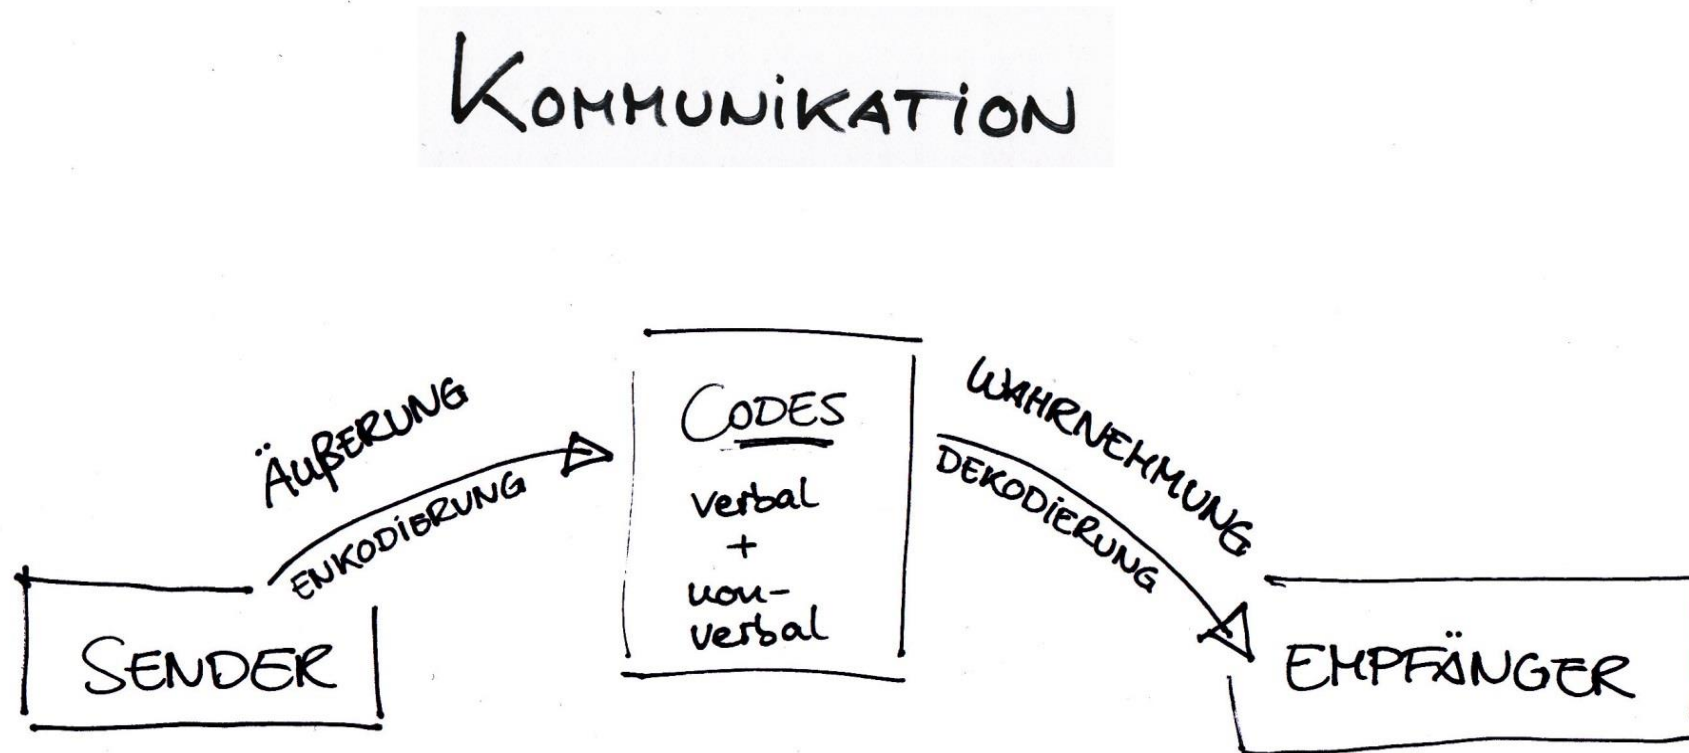 KOMMUNIKATION
ÄUßERUNG
ENKODIERUNG
SENDER
CODES
verbal
+
non-
verbal
WAHRNEHMUNG
DEKODIERUNG
EMPFÄNGER